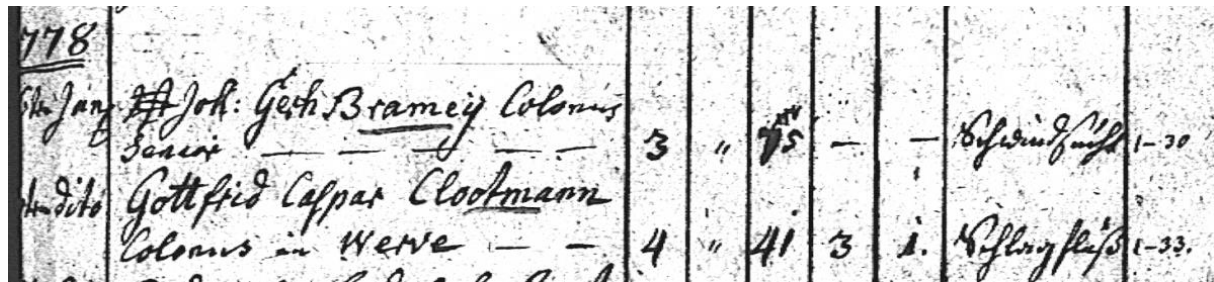 778
Janr Joh: Gerh Bramey Colonus
Senior — — — — — 3 " 75 — — Schwindsucht 1-30
dito Gottfried Caspar Clootmann
Colonus in Werve — — 4 " 41 3 1. Schlagfluß 1-33.